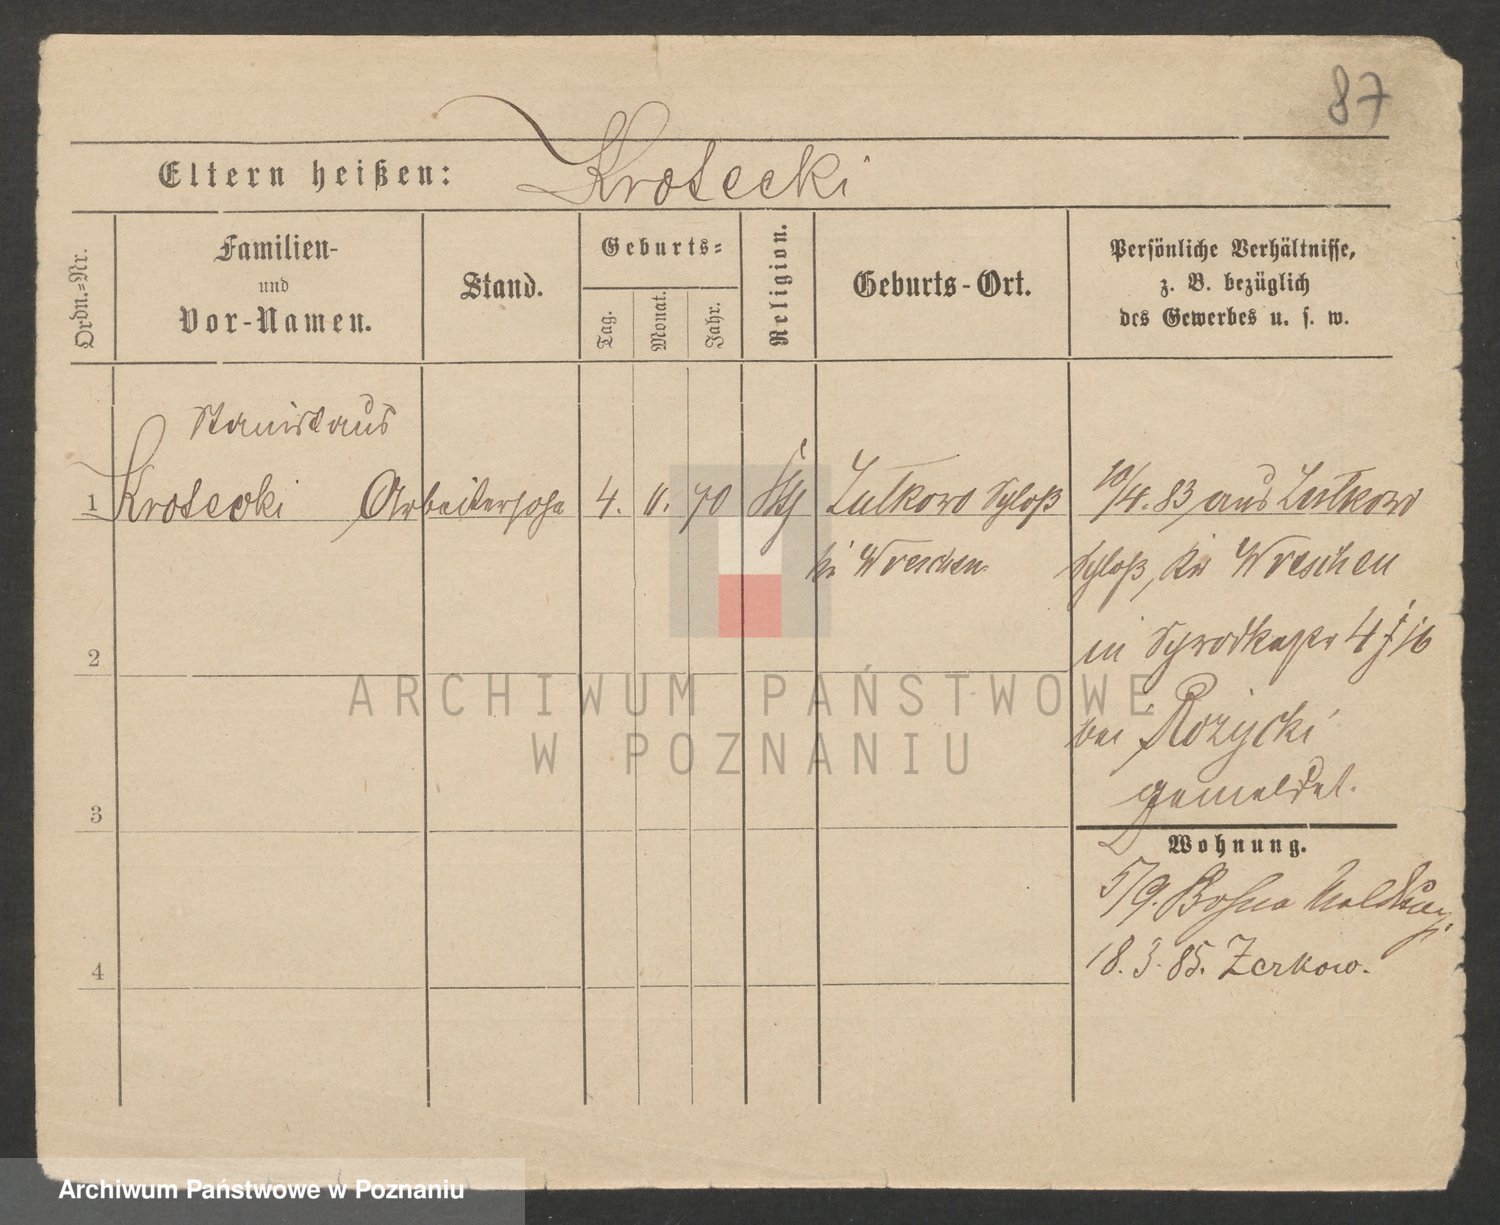 87
Eltern heißen: Krotecki
Ordn.=Nr.
Familien-
und
Vor-Namen.
Stand.
Geburts=
Tag.
Monat.
Jahr.
Religion.
Geburts-Ort.
Persönliche Verhältnisse,
z. B. bezüglich
des Gewerbes u. s. w.
Stanislaus
1 Krotecki Arbeitersohn 4. 11. 70 Kth Lulkowo Schloß
Kr Wreschen
10/4.83 aus
Schloß, Kr Wreschen
in Schrodkastr 4
bei Rozycki
gemeldet.
2
3
4
Wohnung.
5/9. Ohne Meldung.
18.3.85. Zerkow.
ARCHIWUM PAŃSTWOWE
W POZNANIU
Archiwum Państwowe w Poznaniu